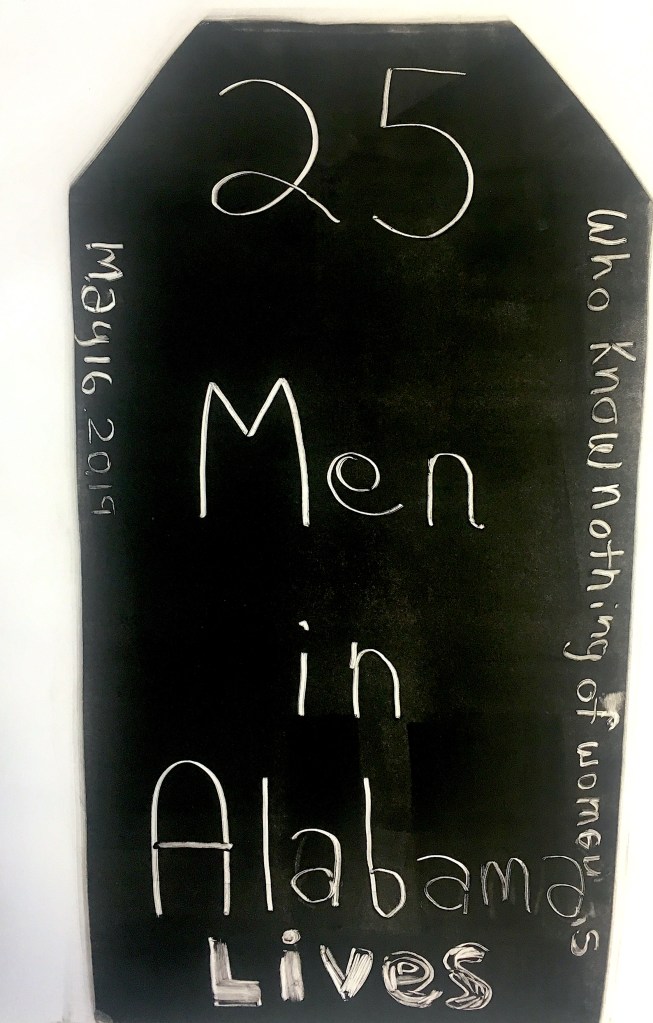 25
Men
in
Alabama
Who Know nothing of women's
Lives
May 16 2019